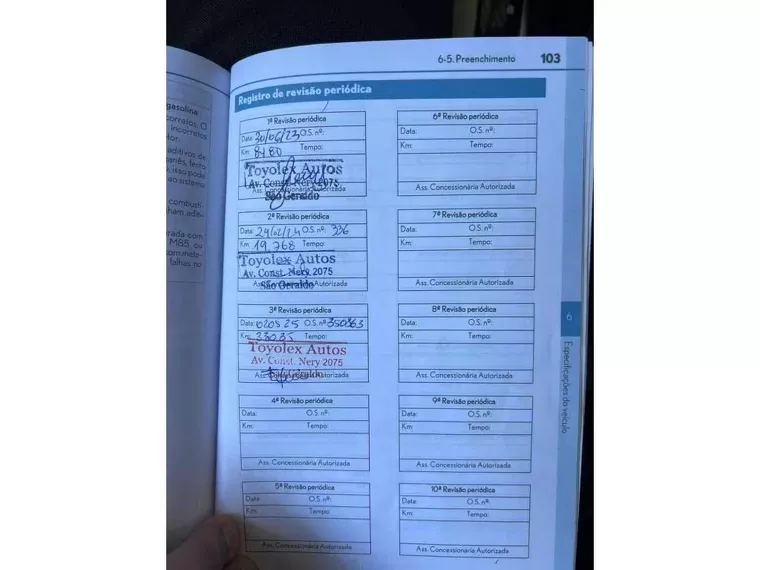 6-5. Preenchimento 103
Registro de revisão periódica
gasolina
corrolos. O
incorretos
ditivos de
anês, ferro
isso pode
ao sistema
combustí-
ham adit-
rada com
MB5, ou
falhas no
1ª Revisão periódica
Data: 30/06/23 O.S. nº:
Km: 8480 Tempo:
Toyolex Autos
Av. Const. Nery 2075
Ass. Concessionária Autorizada
São Geraldo
2ª Revisão periódica
Data: 29/02/24 O.S. nº: 336
Km: 19.768 Tempo:
Toyolex Autos
Av. Const. Nery 2075
Ass. Concessionária Autorizada
São Geraldo
3ª Revisão periódica
Data: 020525 O.S. nº 350363
Km: 23035 Tempo:
Toyolex Autos
Av. Const. Nery 2075
São Geraldo
Ass. Concessionária Autorizada
4ª Revisão periódica
Data: O.S. nº:
Km: Tempo:
Ass. Concessionária Autorizada
5ª Revisão periódica
Data: O.S. nº:
Km: Tempo:
Ass. Concessionária Autorizada
6ª Revisão periódica
Data: O.S. nº:
Km: Tempo:
Ass. Concessionária Autorizada
7ª Revisão periódica
Data: O.S. nº:
Km: Tempo:
Ass. Concessionária Autorizada
8ª Revisão periódica
Data: O.S. nº:
Km: Tempo:
Ass. Concessionária Autorizada
9ª Revisão periódica
Data: O.S. nº:
Km: Tempo:
Ass. Concessionária Autorizada
10ª Revisão periódica
Data: O.S. nº:
Km: Tempo:
Ass. Concessionária Autorizada
6
Especificações do veículo